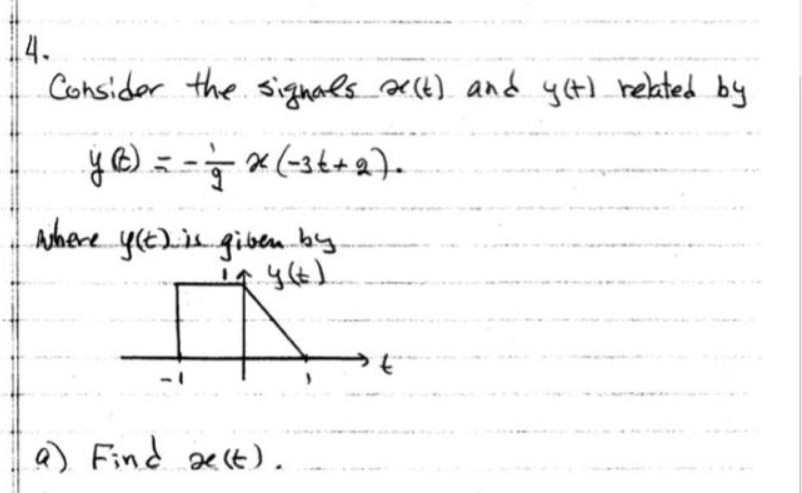 4.
Consider the signals x(t) and y(t) related by
y(t) = -1/9 x(-3t+2).
where y(t) is given by
1 y(t)
t
-1 1
a) Find x(t).